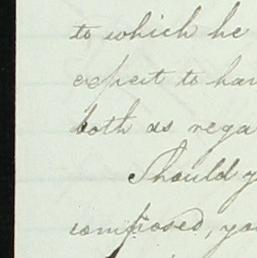 to which he
expect to hav
both as rega
Should y
composed, yo